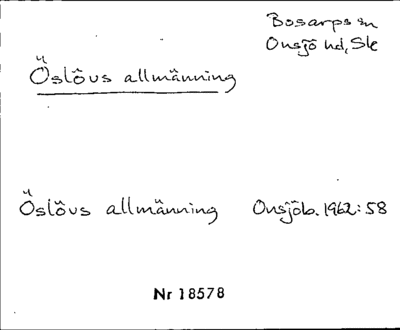 Bosarps sn
Onsjö hd, Ske
Öslövs allmänning
Öslövs allmänning Onsjöb. 1962:58
Nr 18578